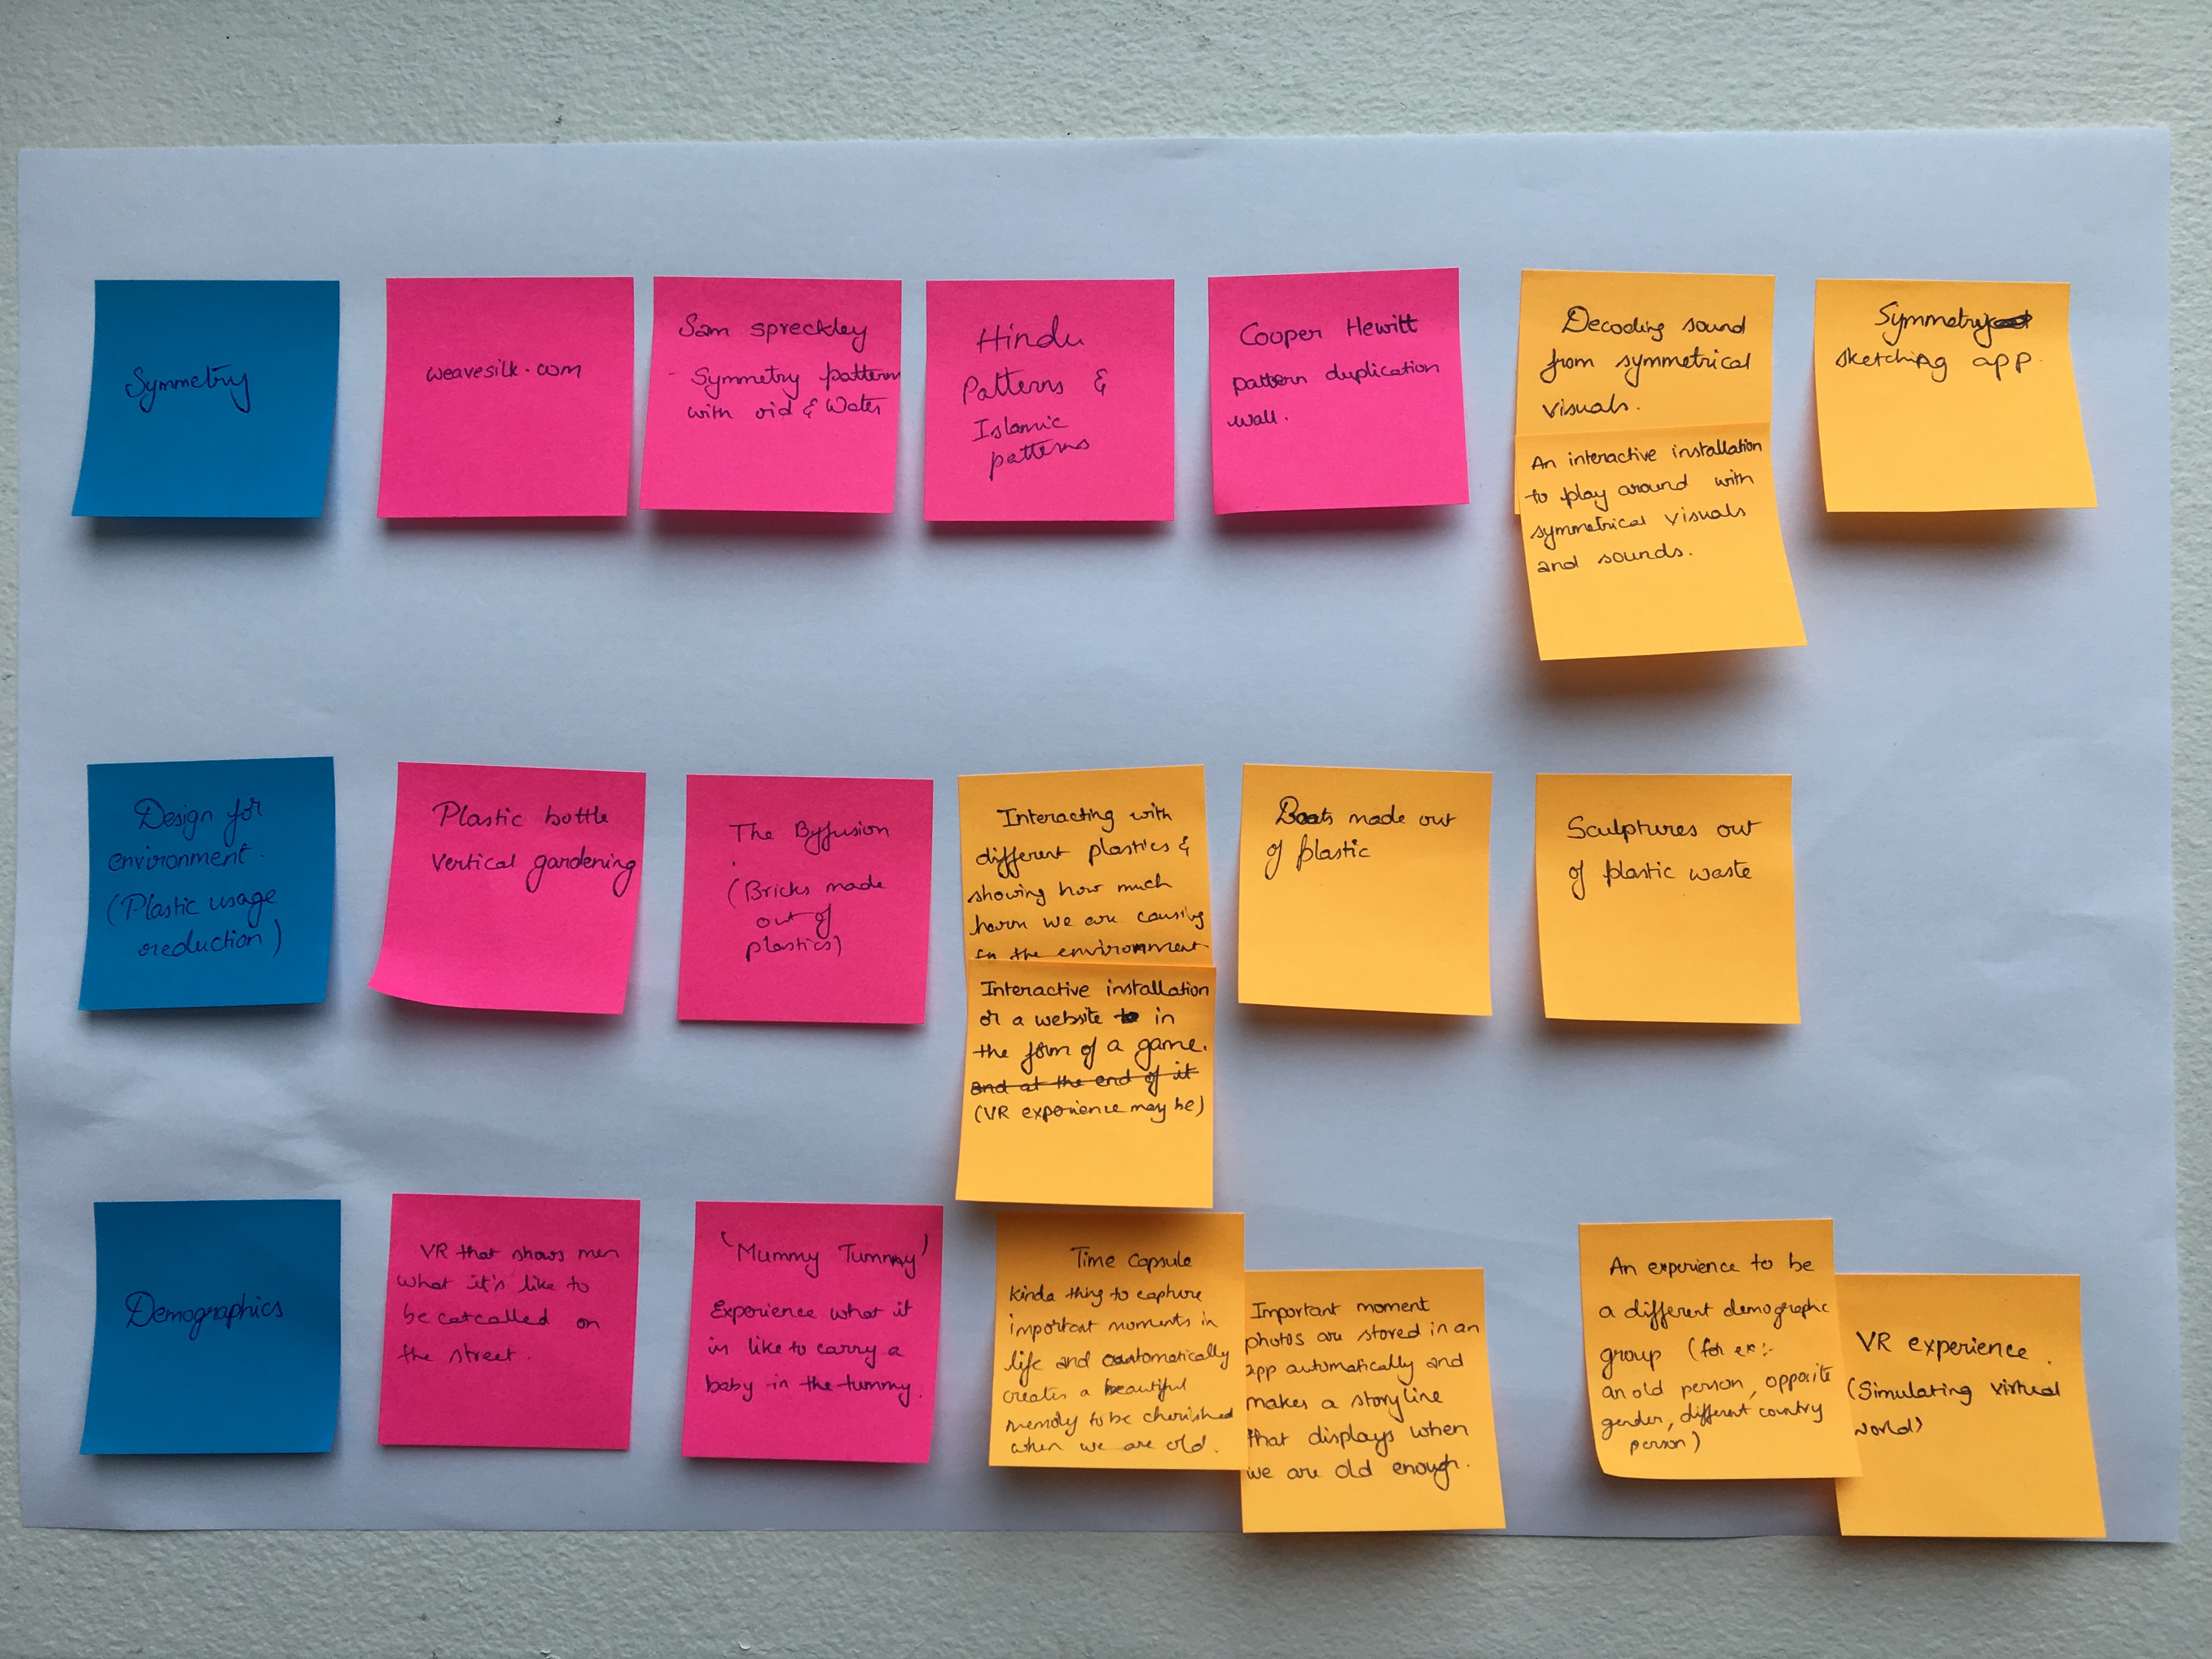 Symmetry
weavesilk.com
Sam spreckley
- Symmetry pattern
with oid & Water
Hindu
Patterns &
Islamic
patterns
Cooper Hewitt
pattern duplication
wall.
Decoding sound
from symmetrical
visuals.
An interactive installation
to play around with
symmetrical visuals
and sounds.
Symmetry
sketching app.
Design for
environment.
(Plastic usage
reduction)
Plastic bottle
Vertical gardening
The Byfusion
(Bricks made
out of
plastics)
Interacting with
different plastics &
showing how much
harm we are causing
in the environment
Interactive installation
or a website in
the form of a game.
and at the end of it
(VR experience may be)
Boats made out
of plastic
Sculptures out
of plastic waste
Demographics
VR that shows men
what it's like to
be catcalled on
the street.
'Mummy Tummy'
Experience what it
is like to carry a
baby in the tummy.
Time Capsule
kinda thing to capture
important moments in
life and automatically
creates a beautiful
memory to be cherished
when we are old.
Important moment
photos are stored in an
app automatically and
makes a storyline
that displays when
we are old enough.
An experience to be
a different demographic
group (for ex:-
an old person, opposite
gender, different country
person)
VR experience.
(Simulating virtual
world)